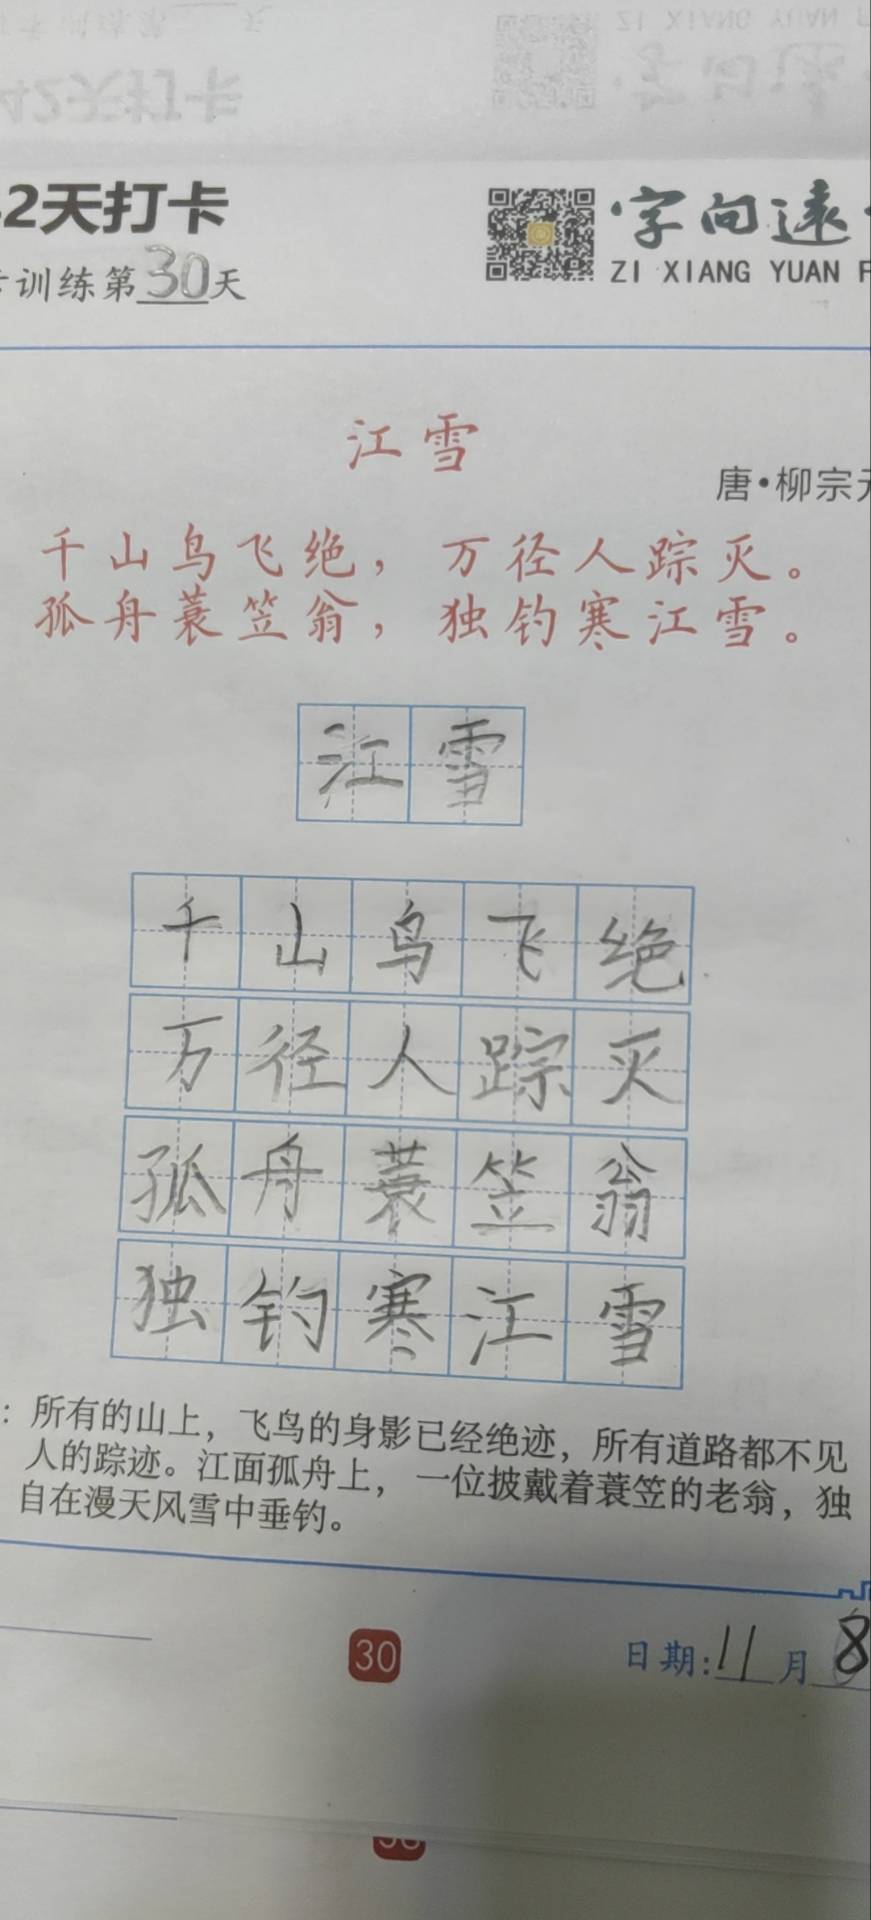 2天打卡
训练第30天
字向远
ZI XIANG YUAN
江雪
唐·柳宗元
千山鸟飞绝，万径人踪灭。
孤舟蓑笠翁，独钓寒江雪。
江雪
千山鸟飞绝
万径人踪灭
孤舟蓑笠翁
独钓寒江雪
：所有的山上，飞鸟的身影已经绝迹，所有道路都不见
人的踪迹。江面孤舟上，一位披戴着蓑笠的老翁，独
自在漫天风雪中垂钓。
30
日期：11月8